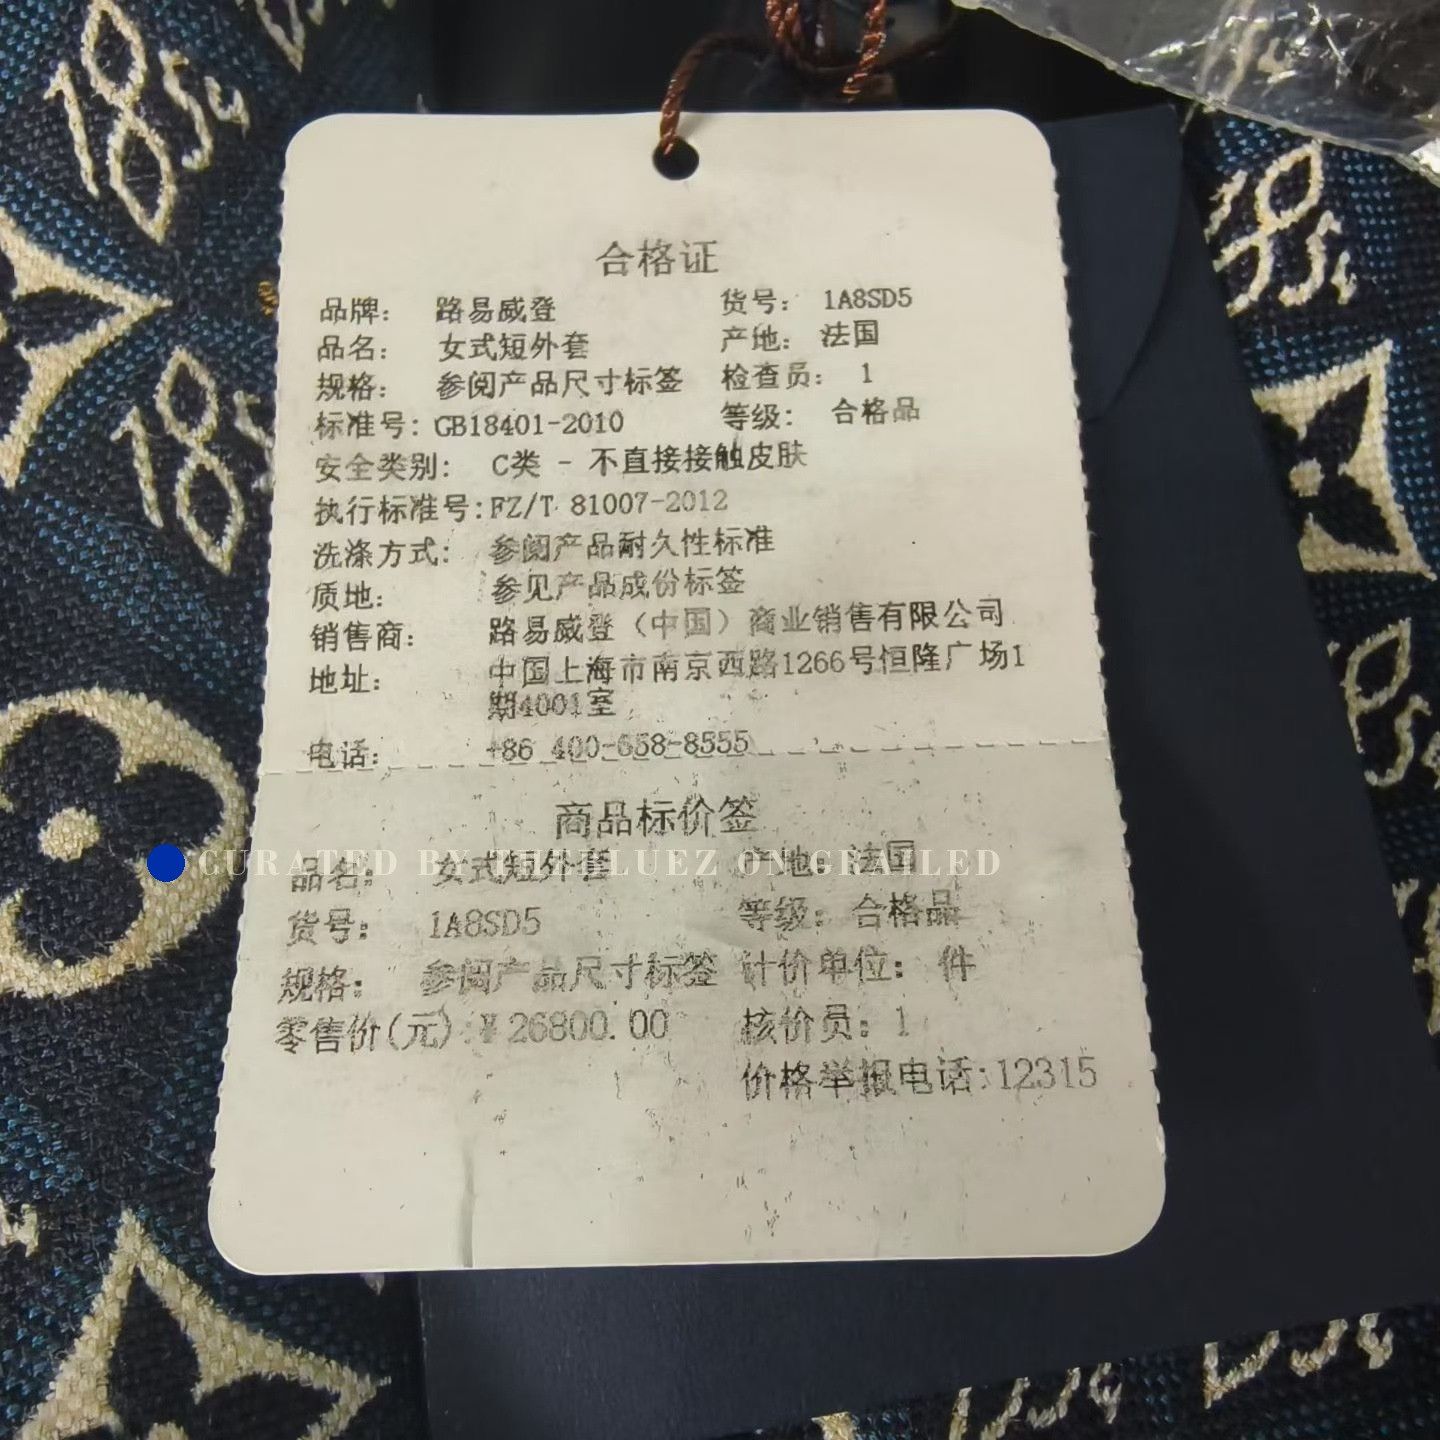 合格证
品牌: 路易威登 货号: 1A8SD5
品名: 女式短外套 产地: 法国
规格: 参阅产品尺寸标签 检查员: 1
标准号: GB18401-2010 等级: 合格品
安全类别: C类 - 不直接接触皮肤
执行标准号:FZ/T 81007-2012
洗涤方式: 参阅产品耐久性标准
质地: 参见产品成份标签
销售商: 路易威登（中国）商业销售有限公司
地址: 中国上海市南京西路1266号恒隆广场1
期4001室
电话: +86 400-658-8555
商品标价签
品名: 女式短外套 产地: 法国
CURATED BY PHEILUEZ ON GRAILED
货号: 1A8SD5 等级: 合格品
规格: 参阅产品尺寸标签 计价单位: 件
零售价(元):¥26800.00 核价员: 1
价格举报电话:12315
1854
1854
1854
1854
1854